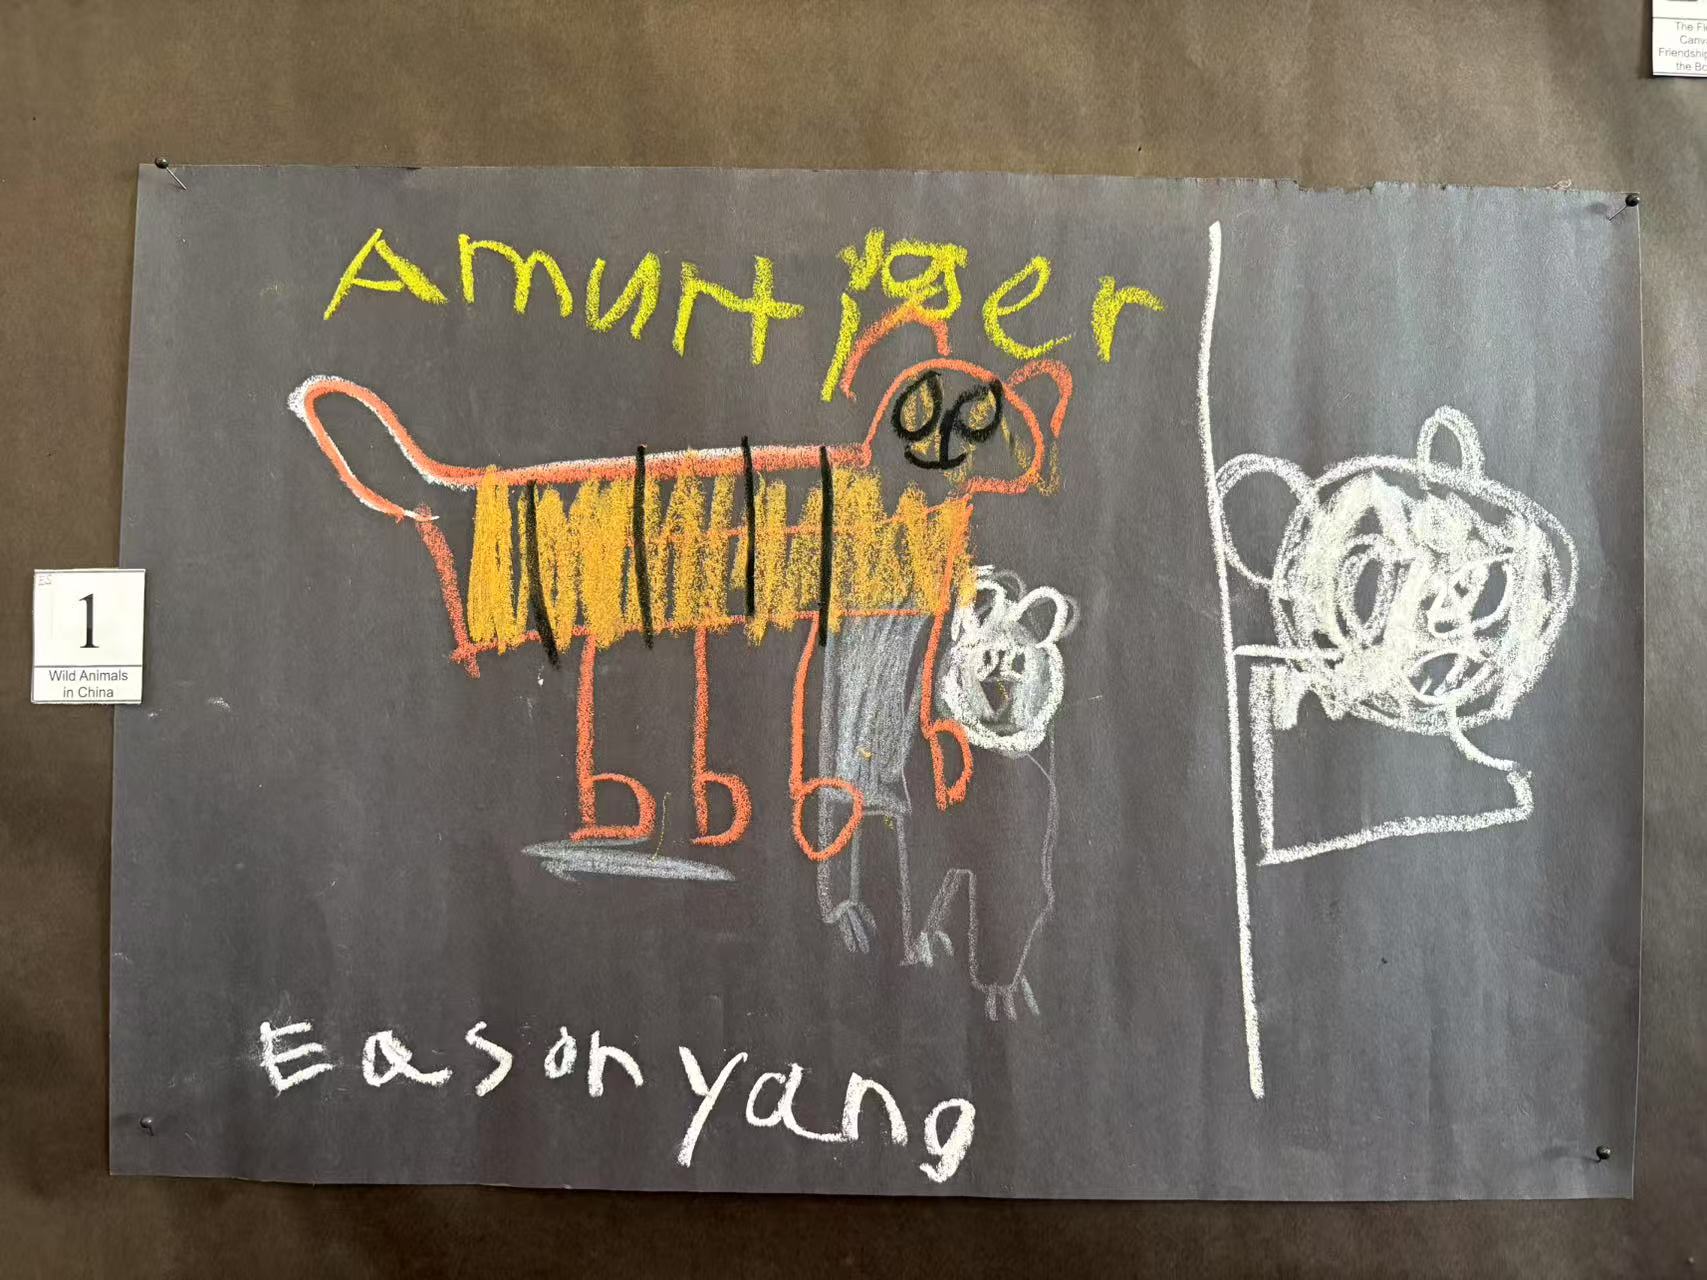 The Fi
Canv
Friendship
the Bo
Amur tiger
1
Wild Animals
in China
Eason yang